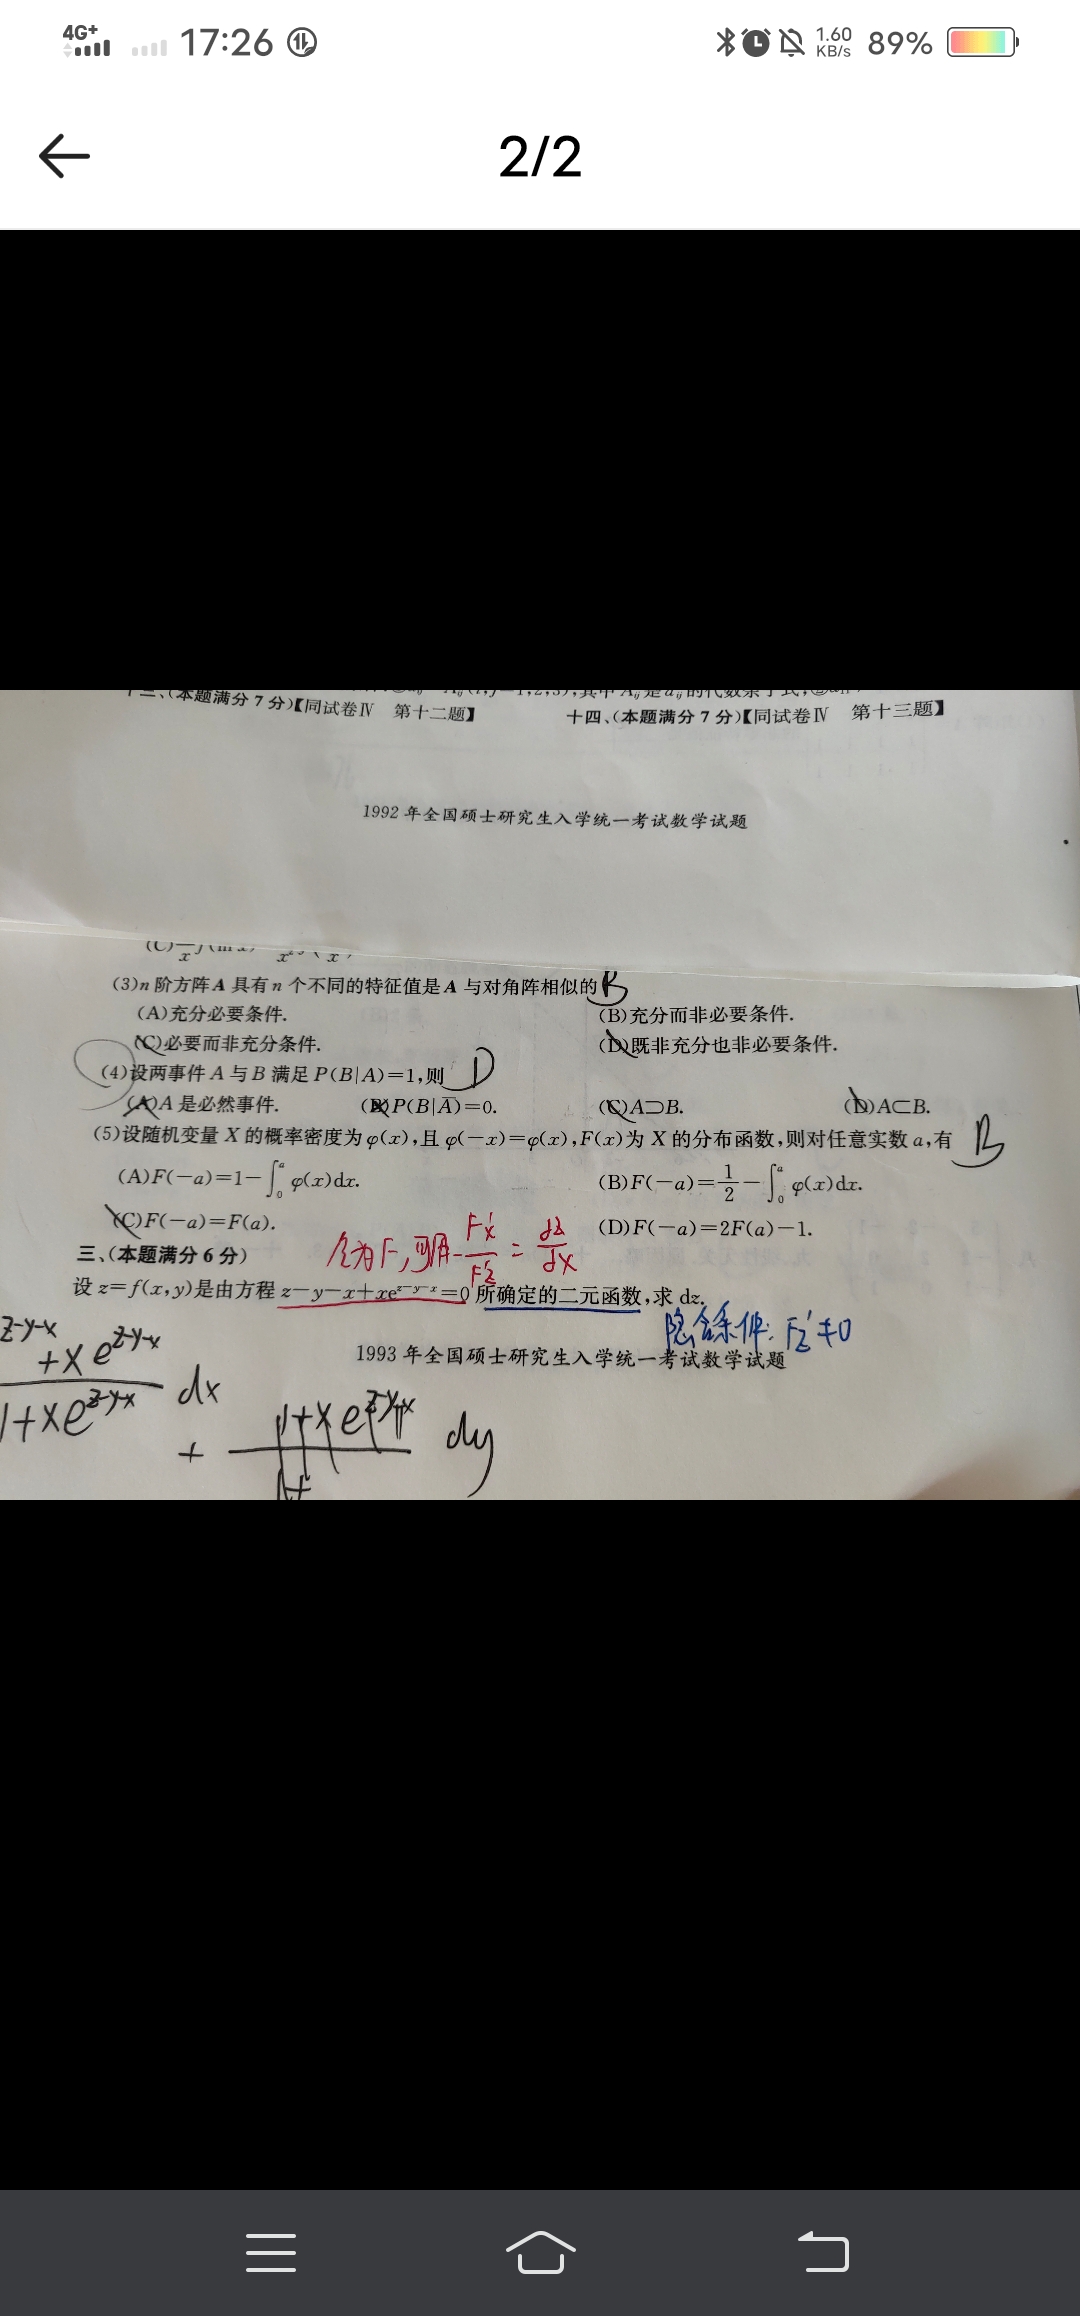 4G+ 17:26 1.60 KB/s 89%
2/2
十三、(本题满分 7 分)【同试卷Ⅳ 第十二题】 十四、(本题满分 7 分)【同试卷Ⅳ 第十三题】
1992 年全国硕士研究生入学统一考试数学试题
(3)n 阶方阵 A 具有 n 个不同的特征值是 A 与对角阵相似的 B
(A)充分必要条件. (B)充分而非必要条件.
(C)必要而非充分条件. (D)既非充分也非必要条件.
(4)设两事件 A 与 B 满足 P(B|A)=1,则 D
(A)A 是必然事件. (B)P(B|A̅)=0. (C)A⊃B. (D)A⊂B.
(5)设随机变量 X 的概率密度为 φ(x),且 φ(-x)=φ(x),F(x)为 X 的分布函数,则对任意实数 a,有 B
(A)F(-a)=1-∫₀ᵃ φ(x)dx. (B)F(-a)=1/2-∫₀ᵃ φ(x)dx.
(C)F(-a)=F(a). (D)F(-a)=2F(a)-1.
三、(本题满分 6 分)
令为F,可用-F'x/F'z=dz/dx
设 z=f(x,y)是由方程 z-y-x+xe^(z-y-x)=0 所确定的二元函数,求 dz.
隐含条件: Fz'≠0
1993 年全国硕士研究生入学统一考试数学试题
z-y-x
+xe^(z-y-x)
1+xe^(z-y-x) dx
+ 1+xe dy
1+